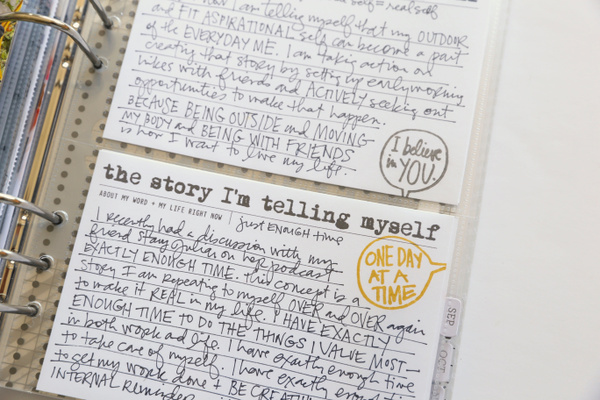 now I am telling myself that my OUTDOOR
and FIT ASPIRATIONAL self can become a part
of the EVERYDAY ME. I am taking action on
creating that story by setting up early morning
hikes with friends and ACTIVELY seeking out
opportunities to make that happen.
BECAUSE BEING OUTSIDE and MOVING
MY BODY and BEING WITH FRIENDS
is how I want to live my life.
I believe
in YOU.
the story I'm telling myself
ABOUT MY WORD + MY LIFE RIGHT NOW | just ENOUGH time
I recently had a discussion with my
friend Stacy Julian on her podcast
EXACTLY ENOUGH TIME. This concept is a
story I am repeating to myself OVER and OVER again
to make it REAL in my life. I HAVE EXACTLY
ENOUGH TIME TO DO THE THINGS I VALUE MOST -
in both work and life. I have exactly enough time
to take care of myself. I have exactly enough time
to get my work done + BE CREATIVE
INTERNAL Reminder
ONE DAY
AT A
TIME
SEP
OCT